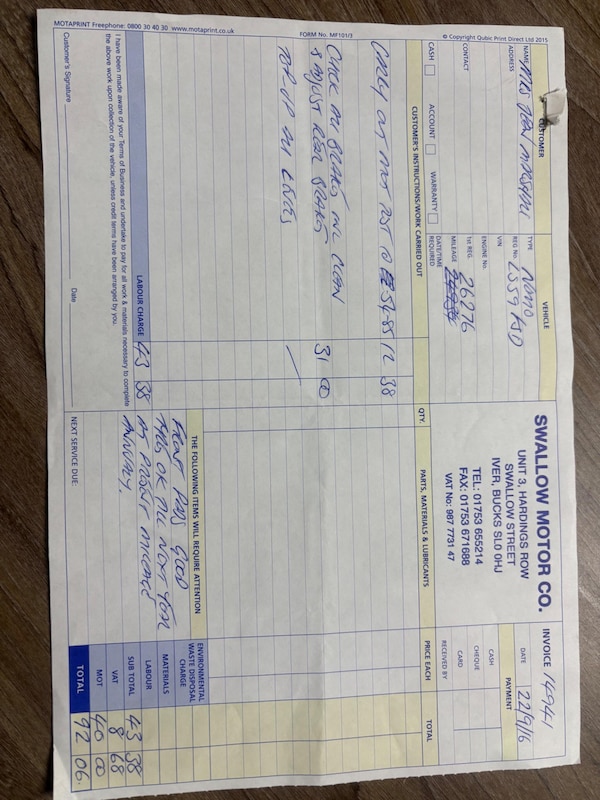 MOTAPRINT Freephone: 0800 30 40 30 www.motaprint.co.uk
FORM No. MF101/3
© Copyright Qubic Print Direct Ltd 2015
CUSTOMER
NAME MRS JEAN MARSHALL
ADDRESS
CONTACT
CASH ACCOUNT WARRANTY
VEHICLE
TYPE
REG No.
VIN
ENGINE No.
1st REG.
MILEAGE 26276
DATE/TIME REQUIRED
SWALLOW MOTOR CO.
UNIT 3, HARDINGS ROW
SWALLOW STREET
IVER, BUCKS SL0 0HJ
TEL: 01753 655214
FAX: 01753 671688
VAT No: 987 7731 47
INVOICE 14941
DATE 22/9/16
PAYMENT
CASH
CHEQUE
CARD
RECEIVED BY
CUSTOMER'S INSTRUCTIONS/WORK CARRIED OUT
QTY.
PARTS, MATERIALS & LUBRICANTS
PRICE EACH
TOTAL
CARRY OUT MOT TEST @ 54-85 12 38
CHECK ALL BRAKES INC CLEAN
& ADJUST REAR BRAKES 31 00
TOP UP ALL LEVELS
LABOUR CHARGE 43 38
I have been made aware of your Terms of Business and undertake to pay for all work & materials necessary to complete
the above work upon collection of the vehicle, unless credit terms have been arranged by you.
Customer's Signature Date
THE FOLLOWING ITEMS WILL REQUIRE ATTENTION
FRONT PADS GOOD
OK TILL NEXT YEAR
AT PRESENT MILEAGE
ANNUALY.
NEXT SERVICE DUE:
ENVIRONMENTAL WASTE DISPOSAL CHARGE
MATERIALS
LABOUR
SUB TOTAL 43 38
VAT 8 68
MOT 40 00
TOTAL 92 06